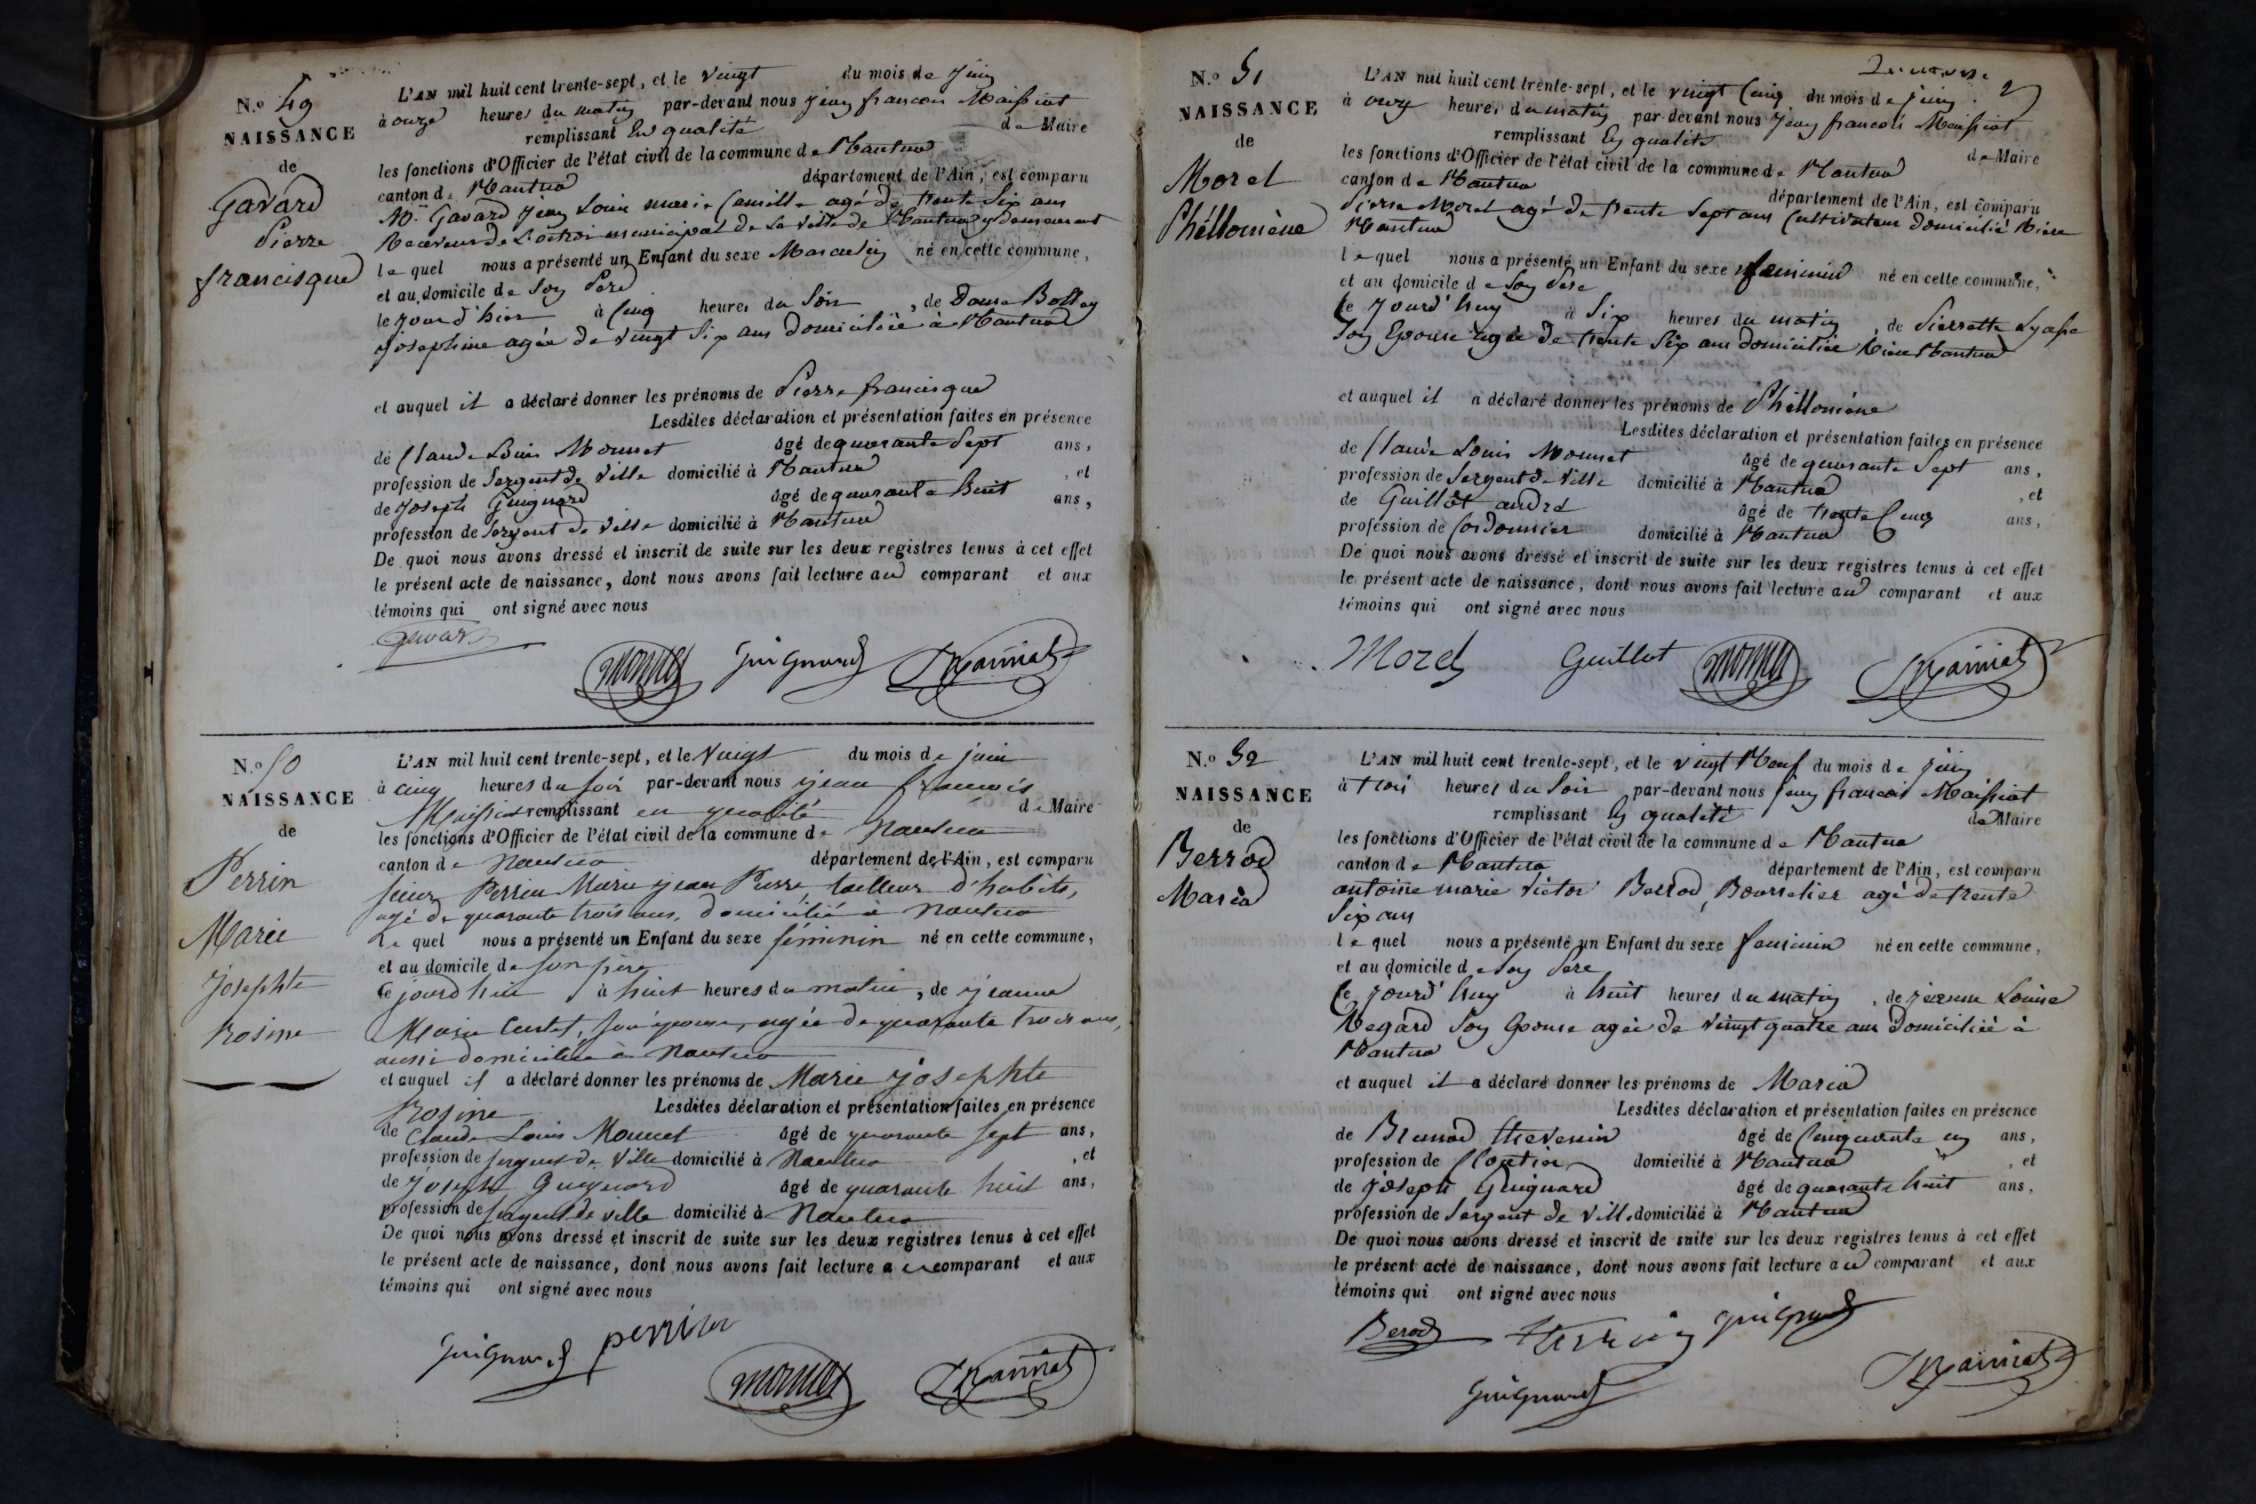 N.o 49
NAISSANCE
de
Gavard
Pierre
francisque
L'AN mil huit cent trente-sept, et le vingt du mois de juin
à onze heures du matin par-devant nous jean francois Maissiat
remplissant En qualité de Maire
les fonctions d'Officier de l'état civil de la commune de Nantua
canton de Nantua département de l'Ain, est comparu
Mr. Gavard jean Louis marie Camille agé de trente Six ans
Receveur de L'octroi municipal de La Ville de Nantua y demeurant
le quel nous a présenté un Enfant du sexe Masculin né en cette commune,
et au domicile de Son Pere
le jour d'hier à Cinq heures du Soir, de Dame Bolley
josephine agée de vingt Six ans domiciliée à Nantua
et auquel il a déclaré donner les prénoms de Pierre francisque
Lesdites déclaration et présentation faites en présence
de Claude Louis Monnet âgé de quarante Sept ans,
profession de Sergent de Ville domicilié à Nantua, et
de joseph Guignard âgé de quarante huit ans,
profession de Sergent de Ville domicilié à Nantua
De quoi nous avons dressé et inscrit de suite sur les deux registres tenus à cet effet
le présent acte de naissance, dont nous avons fait lecture au comparant et aux
témoins qui ont signé avec nous
Gavard
Monnet Guignard Maissiat
N.o 50
NAISSANCE
de
Perrin
Marie
josephte
Rosine
L'AN mil huit cent trente-sept, et le Vingt du mois de juin
à cinq heures du soir par-devant nous jean francois
Maissiat remplissant en qualité de Maire
les fonctions d'Officier de l'état civil de la commune de Nantua
canton de Nantua département de l'Ain, est comparu
sieur Perrin Marie jean Pierre, tailleur d'habits,
agé de quarante trois ans, domicilié à Nantua
Le quel nous a présenté un Enfant du sexe féminin né en cette commune,
et au domicile de son père
Ce jourd'hui à huit heures du matin, de jeanne
Marie son épouse, agée de quarante trois ans,
aussi domiciliée à Nantua
et auquel il a déclaré donner les prénoms de Marie josephte
Rosine Lesdites déclaration et présentation faites en présence
de Claude Louis Monnet âgé de quarante sept ans,
profession de sergent de Ville domicilié à Nantua, et
de joseph Guignard âgé de quarante huit ans,
profession de sergent de ville domicilié à Nantua
De quoi nous avons dressé et inscrit de suite sur les deux registres tenus à cet effet
le présent acte de naissance, dont nous avons fait lecture au comparant et aux
témoins qui ont signé avec nous
Guignard perrin
Monnet Maissiat
N.o 51
NAISSANCE
de
Morel
Phéllomène
L'AN mil huit cent trente-sept, et le vingt Cinq du mois de juin
à onze heures du matin par-devant nous jean francois Maissiat
remplissant En qualité de Maire
les fonctions d'Officier de l'état civil de la commune de Nantua
canton de Nantua département de l'Ain, est comparu
Pierre Morel agé de trente Sept ans Cultivateur domicilié Rière
Nantua
le quel nous a présenté un Enfant du sexe feminin né en cette commune,
et au domicile de Son Pere
Ce jourd'huy à Six heures du matin, de Pierrette
Son Epouse agée de trente Six ans domiciliée Rière Nantua
et auquel il a déclaré donner les prénoms de Phéllomène
Lesdites déclaration et présentation faites en présence
de Claude Louis Monnet âgé de quarante Sept ans,
profession de Sergent de Ville domicilié à Nantua, et
de Guillot andré âgé de trente Cinq ans,
profession de Cordonnier domicilié à Nantua
De quoi nous avons dressé et inscrit de suite sur les deux registres tenus à cet effet
le présent acte de naissance, dont nous avons fait lecture au comparant et aux
témoins qui ont signé avec nous
Morel Guillot Monnet Maissiat
N.o 52
NAISSANCE
de
Berrod
Maria
L'AN mil huit cent trente-sept, et le vingt Neuf du mois de juin
à trois heures du Soir par-devant nous jean francois Maissiat
remplissant En qualité de Maire
les fonctions d'Officier de l'état civil de la commune de Nantua
canton de Nantua département de l'Ain, est comparu
antoine marie victor Berrod, Bourrelier agé de trente
Six ans
le quel nous a présenté un Enfant du sexe feminin né en cette commune,
et au domicile de Son Pere
Ce jourd'huy à huit heures du matin, de jeanne Louise
Regard Son Epouse agée de vingt quatre ans domiciliée à
Nantua
et auquel il a déclaré donner les prénoms de Maria
Lesdites déclaration et présentation faites en présence
de thevenin âgé de Cinquante un ans,
profession de domicilié à Nantua, et
de joseph Guignard âgé de quarante huit ans,
profession de Sergent de Ville domicilié à Nantua
De quoi nous avons dressé et inscrit de suite sur les deux registres tenus à cet effet
le présent acte de naissance, dont nous avons fait lecture au comparant et aux
témoins qui ont signé avec nous
Berod Guignard
Guignard Maissiat